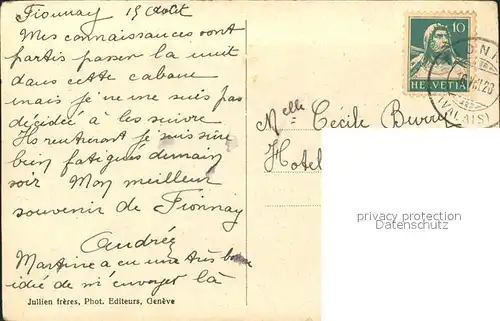 Fionnay 15 Août
Mes connaissances sont
parties passer la nuit
dans cette cabane
mais je ne me suis pas
décidée à les suivre
Ils rentreront je suis sûre
bien fatigués demain
soir Mon meilleur
souvenir de Fionnay
Andrée
Martine a eu une très bonne
idée de m'envoyer là
Jullien frères, Phot. Editeurs, Genève
10
HELVETIA
(VALAIS)
Melle Cécile Burry
Hotel
privacy protection
Datenschutz